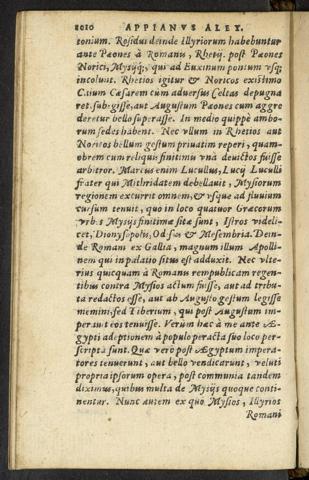 1010 APPIANVS ALEX.
tonium. Residus deinde Illyriorum habebuntur
ante Pæones à Romanis, Rhetij. post Pæones
Norici, Mysijq́; qui ad Euxinum pontum vsq;
incolunt. Rhetios igitur & Noricos existimo
C.ium Cæsarem cum aduersus Celtas depugna
ret. subegisse, aut Augustum Pæones cum aggre
deretur bello superasse. In medio quippè ambo-
rum sedes habent. Nec vllum in Rhetios aut
Noricos bellum gestum priuatim reperi, quam-
obrem cum reliquis finitimis vnà deuictos fuisse
arbitror. Marcus enim Lucullus, Lucij Luculli
frater qui Mithridatem debellauit, Mysorum
regionem excurrit omnem, & vsque ad fluuium
cursum tenuit, quo in loco quatuor Græcorum
vrbs Mysijs finitimæ sitæ sunt, Istros videli-
cet, Dionysopolis, Odssus & Mesembria. Dein-
de Romam ex Gallia, magnum illum Apolli-
nem qui in palatio situs est adduxit. Nec vlte-
rius quicquam à Romanis rempublicam regen-
tibus contra Mysios actum fuisse, aut ad tribu-
ta redactos esse, aut ab Augusto gestum legisse
memini, sed Tiberium, qui post Augustum im-
perauit eos tenuisse. Verùm hæc à me ante Æ-
gypti adeptionem à populo peracta suo loco per-
scripta sunt. Quæ verò post Ægyptum impera-
tores tenuerunt, aut bello vendicarunt, veluti
propria ipsorum opera, post communia tandem
diximus, quibus multa de Mysijs quoque conti-
nentur. Nunc autem ex quo Mysios, Illyrios
Romani